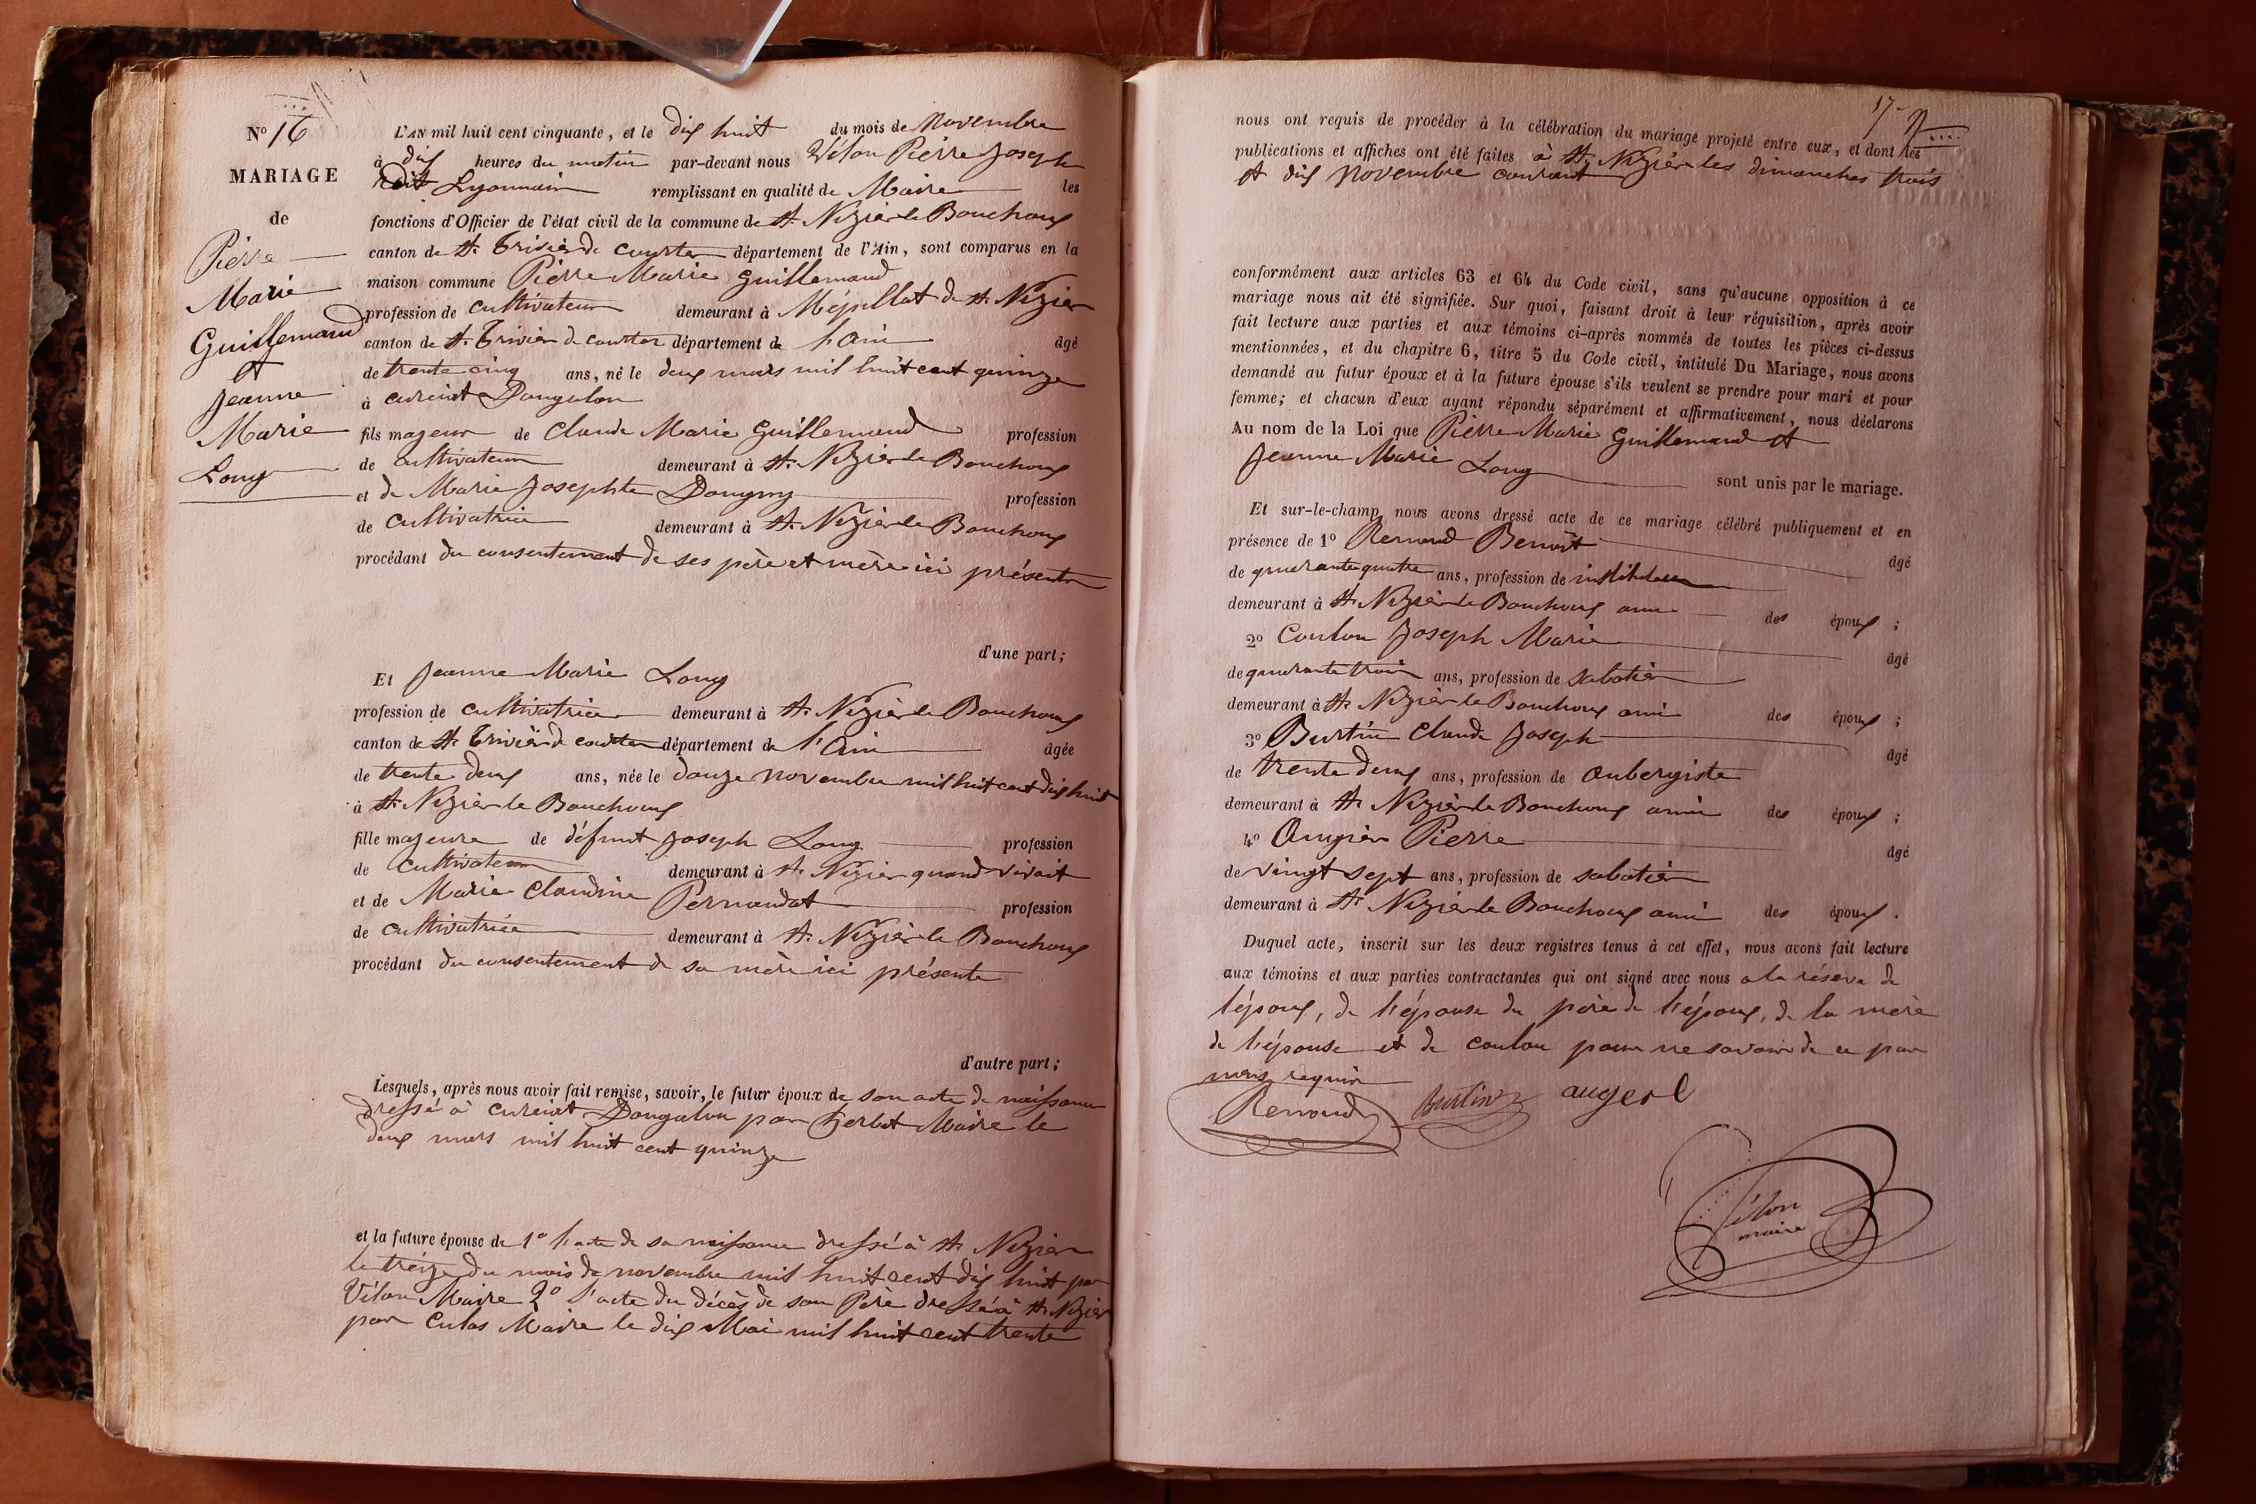 N° 16
MARIAGE
de
Pierre
Marie
Guillemaud
et
Jeanne
Marie
Long
L'AN mil huit cent cinquante, et le dix huit du mois de Novembre
à dix heures du matin par-devant nous Vélon Pierre Joseph
dit Lyonnais remplissant en qualité de Maire les
fonctions d'Officier de l'état civil de la commune de St Nizier le Bouchoux
canton de St Trivier de courtes département de l'Ain, sont comparus en la
maison commune Pierre Marie Guillemaud
profession de cultivateur demeurant à Mépillat de St Nizier
canton de St Trivier de courtes département de l'ain âgé
de trente cinq ans, né le deux mars mil huit cent quinze
à curciat Dongalon
fils majeur de Claude Marie Guillemaud profession
de cultivateur demeurant à St Nizier le Bouchoux
et de Marie Josephte Dougny profession
de cultivatrice demeurant à St Nizier le Bouchoux
procédant du consentement de ses père et mère ici présents
d'une part;
Et Jeanne Marie Long
profession de cultivatrice demeurant à St Nizier le Bouchoux
canton de St Trivier de courtes département de l'Ain âgée
de trente deux ans, née le douze novembre mil huit cent dix huit
à St Nizier le Bouchoux
fille majeure de défunt Joseph Long profession
de cultivateur demeurant à St Nizier quand vivait
et de Marie Claudine Pernaudat profession
de cultivatrice demeurant à St Nizier le Bouchoux
procédant du consentement de sa mère ici présente
d'autre part;
Lesquels, après nous avoir fait remise, savoir, le futur époux de son acte de naissance
dressé à curciat Dongalon par Gerbet Maire le
deux mars mil huit cent quinze
et la future épouse de 1° l'acte de sa naissance dressé à St Nizier
le treize du mois de novembre mil huit cent dix huit par
Vélon Maire 2° l'acte du décès de son Père dressé à St Nizier
par Culas Maire le dix Mai mil huit cent trente
17
nous ont requis de procéder à la célébration du mariage projeté entre eux, et dont les
publications et affiches ont été faites à St Nizier les dimanches trois
et dix novembre courant
conformément aux articles 63 et 64 du Code civil, sans qu'aucune opposition à ce
mariage nous ait été signifiée. Sur quoi, faisant droit à leur réquisition, après avoir
fait lecture aux parties et aux témoins ci-après nommés de toutes les pièces ci-dessus
mentionnées, et du chapitre 6, titre 5 du Code civil, intitulé Du Mariage, nous avons
demandé au futur époux et à la future épouse s'ils veulent se prendre pour mari et pour
femme; et chacun d'eux ayant répondu séparément et affirmativement, nous déclarons
Au nom de la Loi que Pierre Marie Guillemaud et
Jeanne Marie Long sont unis par le mariage.
Et sur-le-champ nous avons dressé acte de ce mariage célébré publiquement et en
présence de 1° Renoud Benoit âgé
de quarante quatre ans, profession de instituteur
demeurant à St Nizier le Bouchoux ami des époux;
2° Coulon Joseph Marie âgé
de quarante trois ans, profession de sabotier
demeurant à St Nizier le Bouchoux ami des époux;
3° Burtin Claude Joseph âgé
de trente deux ans, profession de aubergiste
demeurant à St Nizier le Bouchoux ami des époux;
4° Augier Pierre âgé
de vingt sept ans, profession de sabotier
demeurant à St Nizier le Bouchoux ami des époux.
Duquel acte, inscrit sur les deux registres tenus à cet effet, nous avons fait lecture
aux témoins et aux parties contractantes qui ont signé avec nous a la réserve de
l'époux, de l'épouse du père de l'époux, de la mère
de l'épouse et de coulon pour ne savoir de ce par
nous requis
Renoud Burtin augerl
Vélon
maire